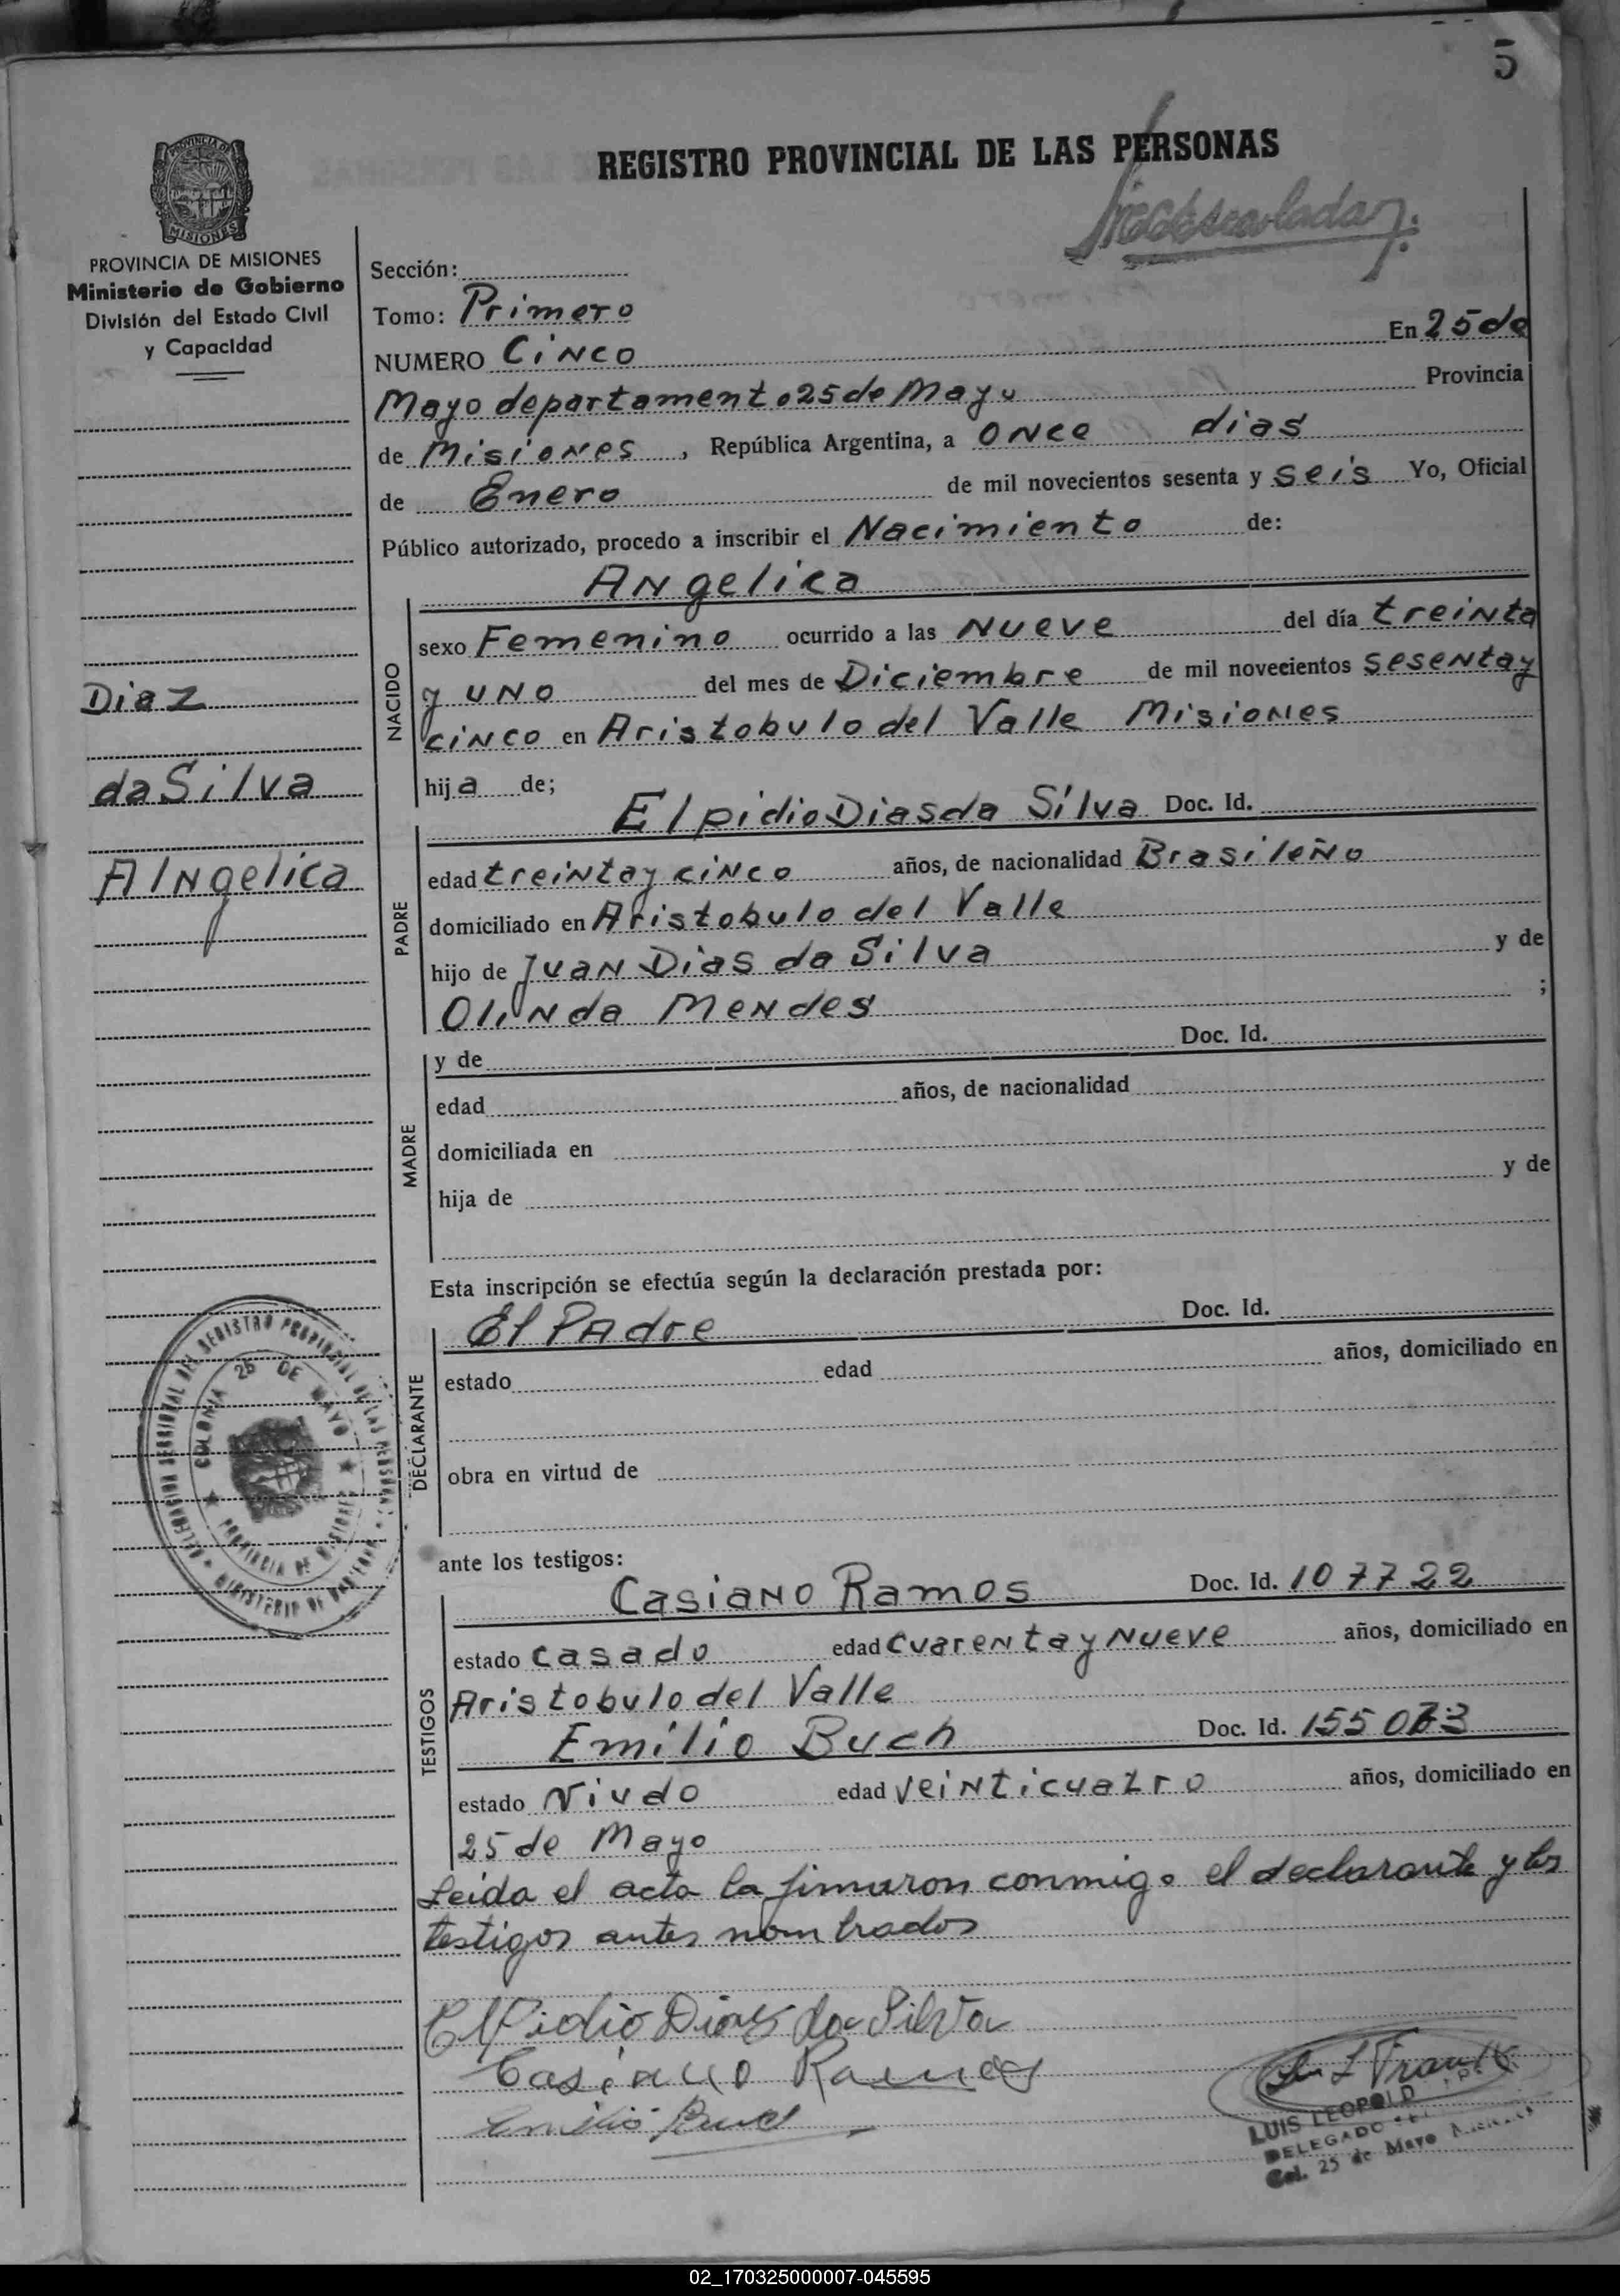 5
REGISTRO PROVINCIAL DE LAS PERSONAS
PROVINCIA DE
MISIONES
PROVINCIA DE MISIONES
Ministerio de Gobierno
División del Estado Civil
y Capacidad
Sección:
Tomo: Primero
NUMERO Cinco En 25 de
Mayo departamento 25 de Mayo Provincia
de Misiones, República Argentina, a once dias
de Enero de mil novecientos sesenta y seis Yo, Oficial
Público autorizado, procedo a inscribir el Nacimiento de:
Angelica
NACIDO
sexo Femenino ocurrido a las Nueve del día treinta
y uno del mes de Diciembre de mil novecientos sesenta y
cinco en Aristobulo del Valle Misiones
hija de;
Diaz
da Silva
Angelica
PADRE
Elpidio Dias da Silva Doc. Id.
edad treinta y cinco años, de nacionalidad Brasileño
domiciliado en Aristobulo del Valle
hijo de Juan Dias da Silva y de
Olinda Mendes ;
MADRE
y de Doc. Id.
edad años, de nacionalidad
domiciliada en
hija de y de
Esta inscripción se efectúa según la declaración prestada por:
DECLARANTE
El Padre Doc. Id.
estado edad años, domiciliado en
obra en virtud de
COLONIA 25 DE MAYO
PROVINCIA DE MISIONES
ante los testigos:
TESTIGOS
Casiano Ramos Doc. Id. 107722
estado casado edad cuarenta y nueve años, domiciliado en
Aristobulo del Valle
Emilio Buch Doc. Id.
estado Viudo edad veinticuatro años, domiciliado en
25 de Mayo
Leida el acta la firmaron conmigo el declarante y los
testigos antes nombrados
Elpidio Dias da Silva
Casiano Ramos
Emilio Buch
LUIS LEOPOLD
DELEGADO
Col. 25 de Mayo
02_170325000007-045595